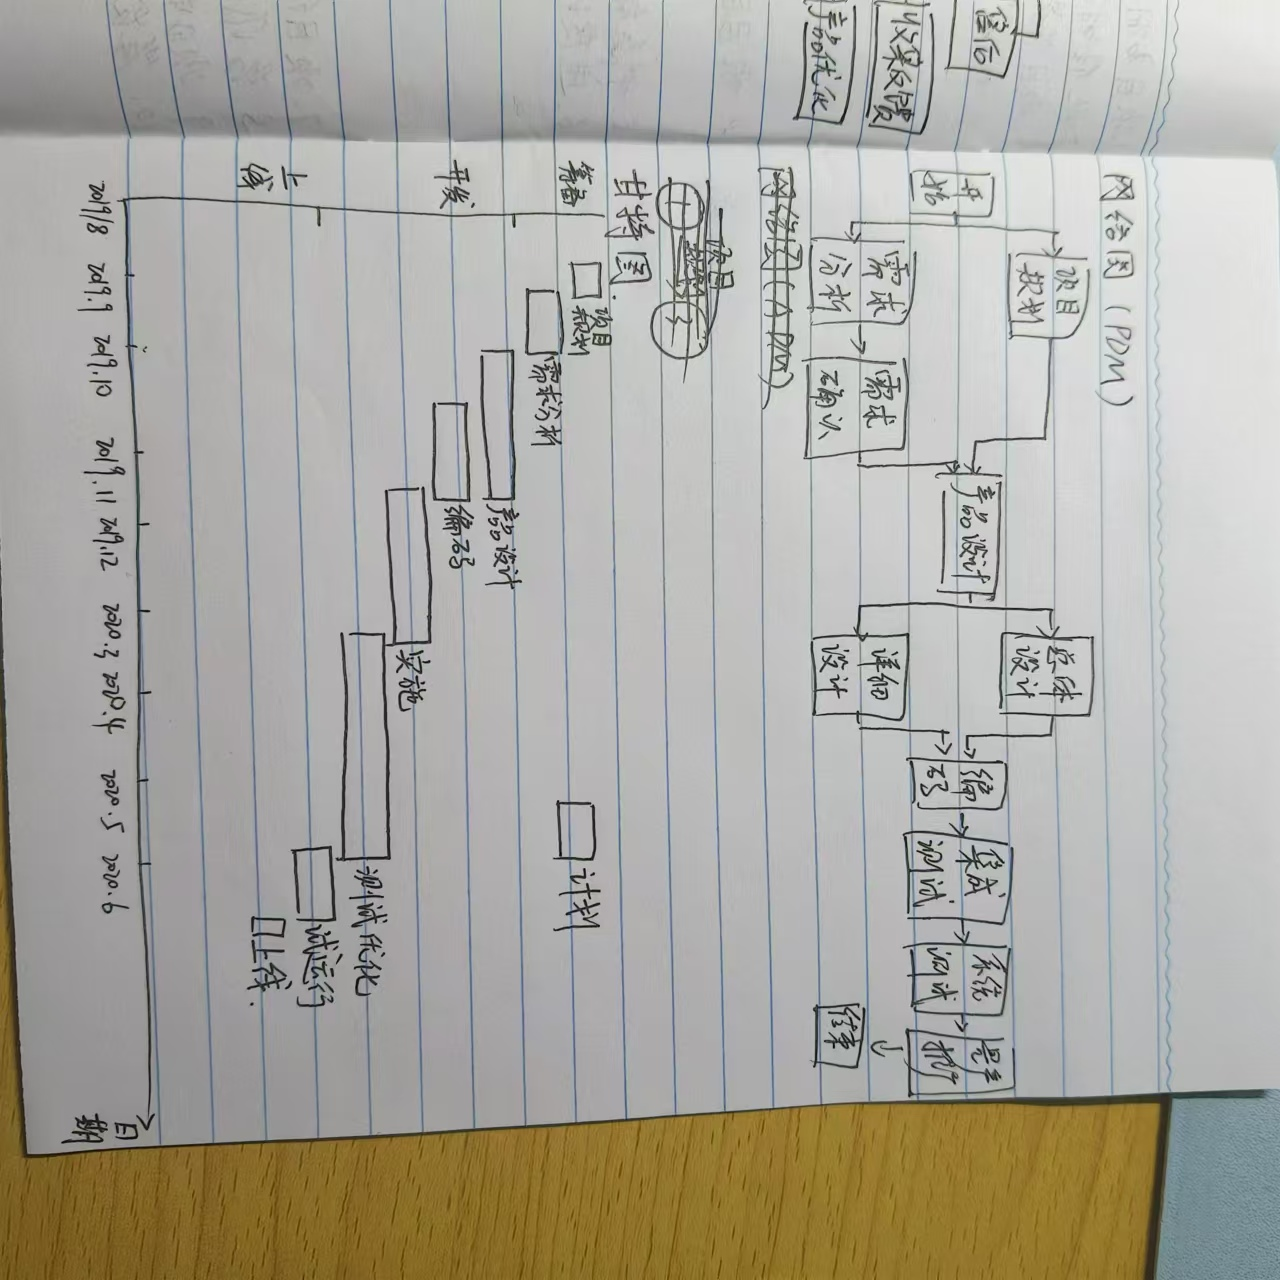 售后
收集反馈
产品优化
网络图 (PDM)
开始
项目
规划
需求
分析
需求
确认
产品设计
总体
设计
详细
设计
编码
集成
测试
系统
测试
结束
网络图(ADM)
项目
甘特图.
筹备
开发
上线
项目
规划
需求分析
产品设计
编码
实施
测试优化
试运行
上线.
计划
2019/8
2019.9
2019.10
2019.11
2019.12
2020.3
2020.4
2020.5
2020.6
日期